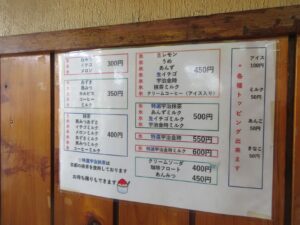 メロン
300円
あずき
黒みつ
カルピス
コーヒー
ミルク
350円
抹茶ミルク
イチゴミルク
メロンミルク
黒みつミルク
コーヒーミルク
400円
※特選宇治抹茶は
京都の抹茶を使用しております
お持ち帰りもできます
生レモン
うめ
あんず
生イチゴ
宇治金時
抹茶ミルク
クリームコーヒー(アイス入り)
450円
特選宇治抹茶
あんずミルク
生イチゴミルク
宇治金時ミルク
500円
特選宇治金時
550円
特選宇治金時ミルク
600円
クリームソーダ
珈琲フロート
400円
あんみつ
450円
各種トッピング出来ます
アイス
100円
ミルク
50円
あんこ
50円
きなこ
50円